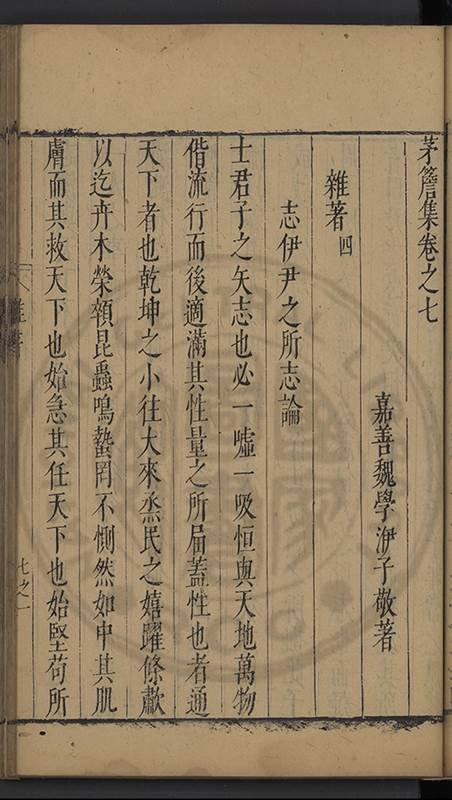 茅簷集卷之七
嘉善魏學洢子敬著
雜著四
志伊尹之所志論
士君子之矢志也必一噓一吸恒與天地萬物
偕流行而後適滿其性量之所屆蓋性也者通
天下者也乾坤之小往大來烝民之嬉躍慘歗
以迄卉木榮顇昆蟲鳴蟄罔不惻然如中其肌
膚而其救天下也始急其任天下也始堅苟所
雜著
七之一